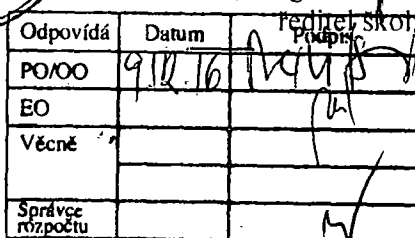 ředitel škol
Odpovídá Datum Podpis
PO/OO 9.12.16
EO
Věcně
Správce
rozpočtu